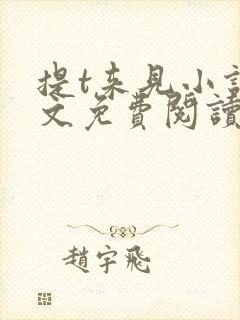 提t来见小說
文免費閱讀
趙宇飛